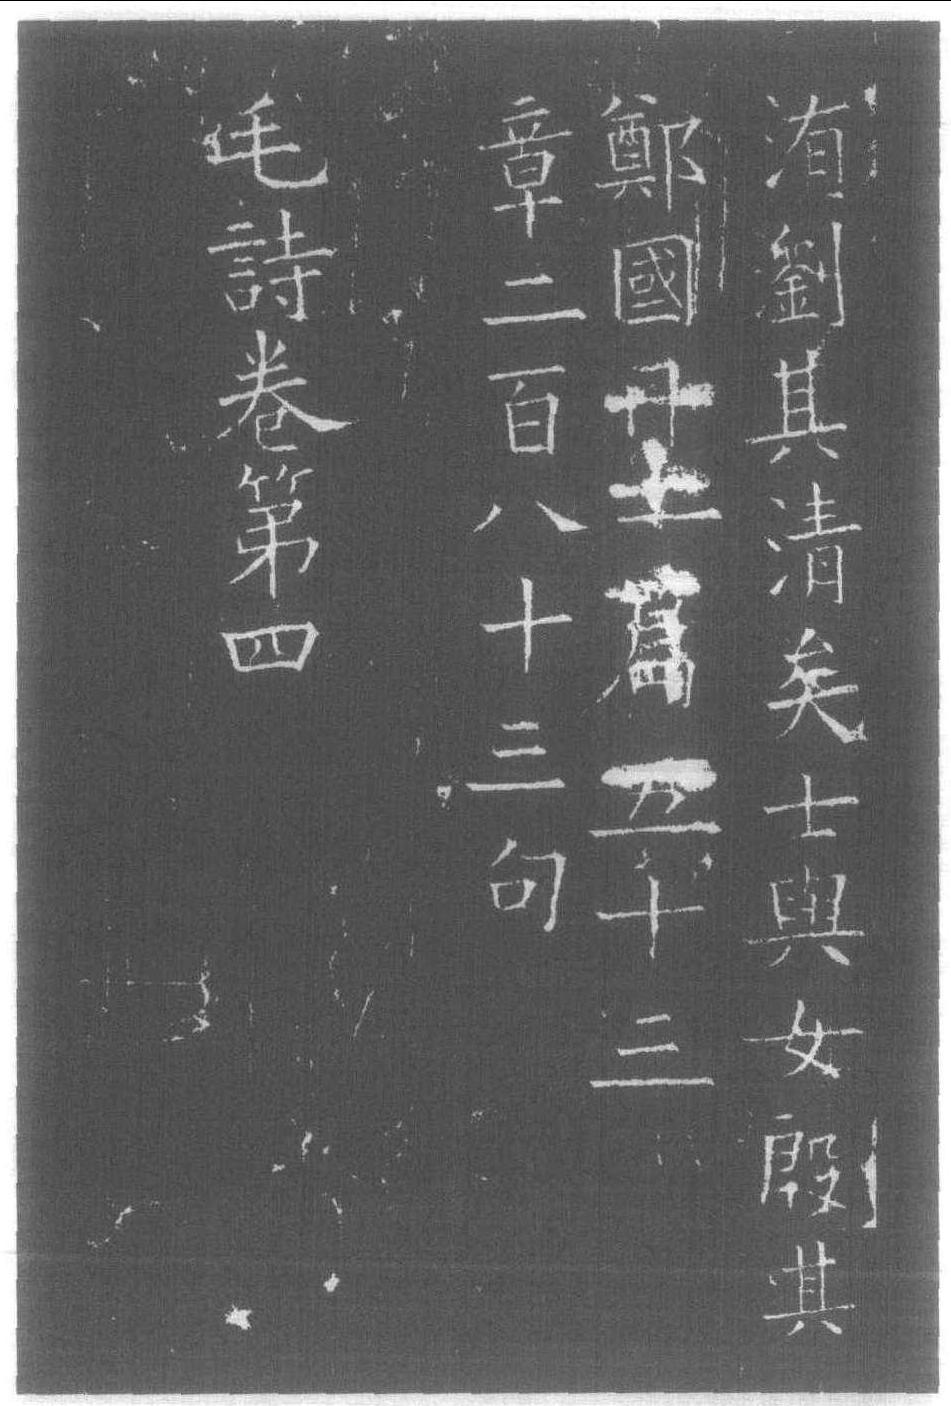 洧劉其清矣士與女殷其
鄭國廿一篇五十三
章二百八十三句
毛詩卷第四